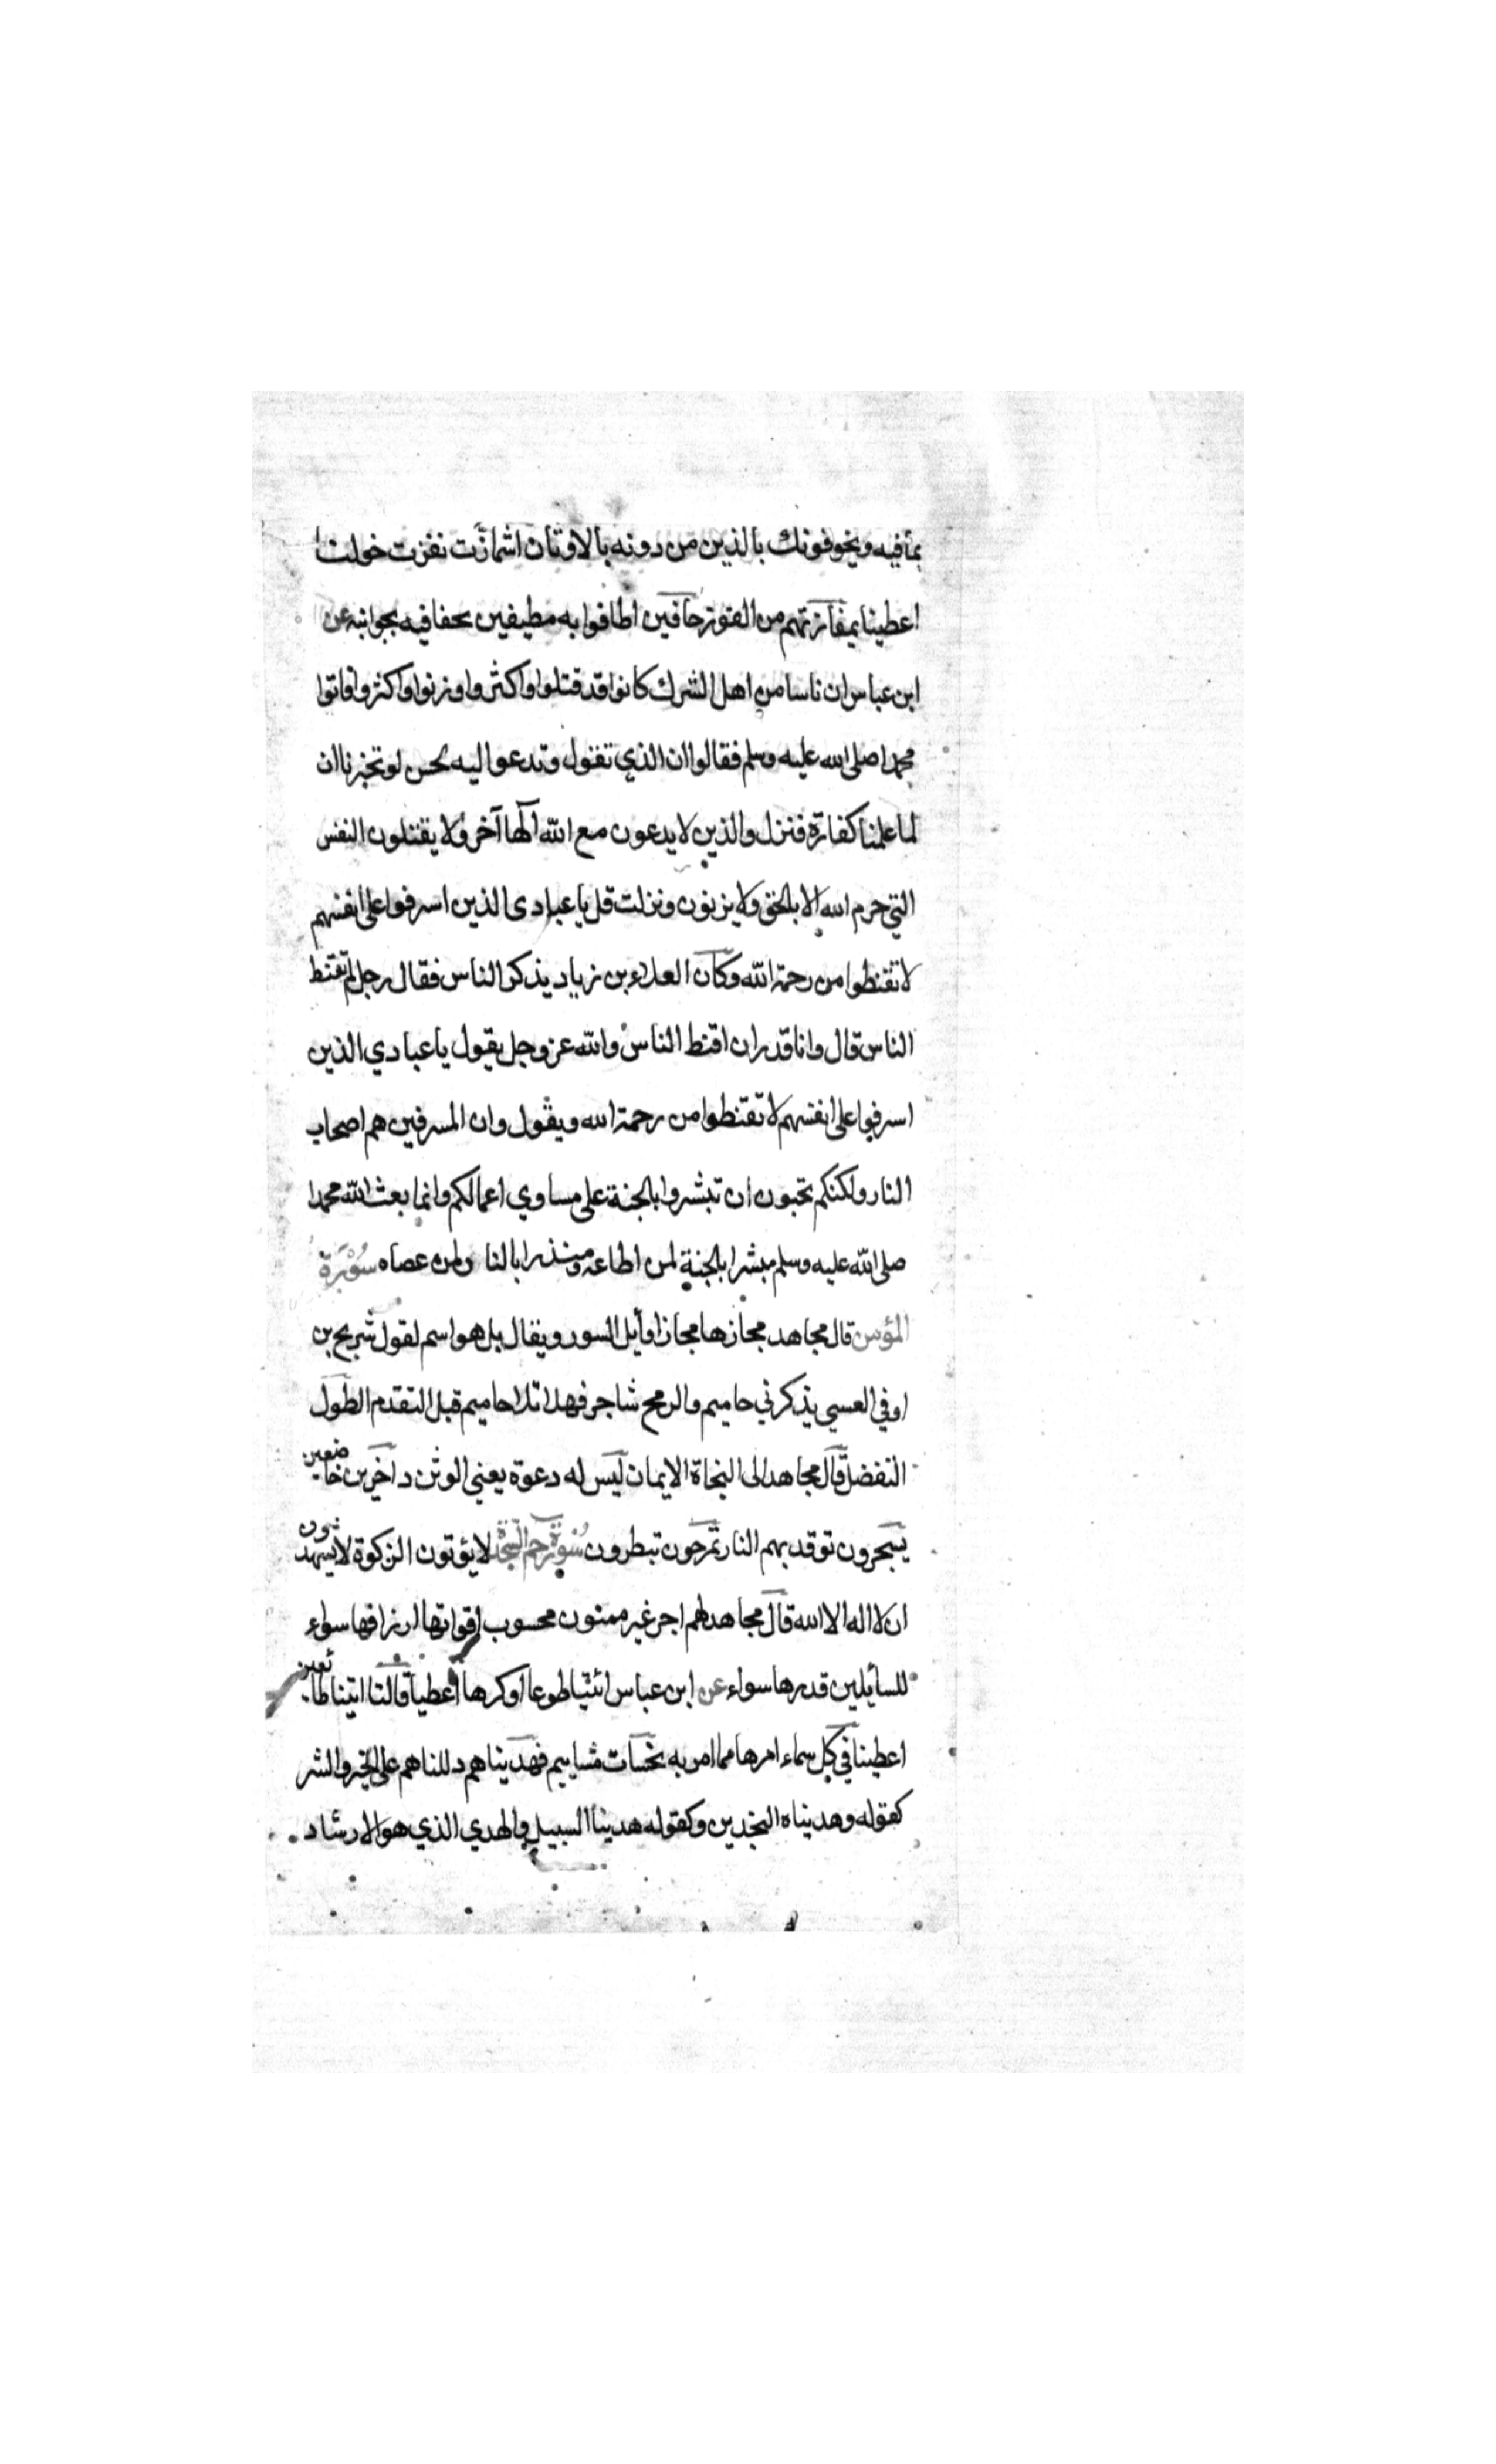 بما فيه ويخوفونك بالذين من دونه بالاوثان اشمازت نفرت خولنا
اعطينا بمفازتهم من الفوز حافين اطافوا به مطيفين بحفافيه بجوانبه عن
ابن عباس ان ناسا من اهل الشرك كانوا قد قتلوا واكثروا وزنوا واكثروا فاتوا
محمدا صلى الله عليه وسلم فقالوا ان الذي تقول وتدعوا اليه لحسن لو تخبرنا ان
لما علمنا كفارة فنزل والذين لا يدعون مع الله الها آخر ولا يقتلون النفس
التي حرم الله الا بالحق ولا يزنون ونزلت قل يا عبادى الذين اسرفوا على انفسهم
لا تقنطوا من رحمة الله وكان العلاء بن زياد يذكر الناس فقال رجل لم تقنط
الناس قال وانا قدر ان اقنط الناس والله عز وجل يقول يا عبادي الذين
اسرفوا على انفسهم لا تقنطوا من رحمة الله ويقول وان المسرفين هم اصحاب
النار ولكنكم تحبون ان تبشروا بالجنة على مساوي اعمالكم وانما بعث الله محمدا
صلى الله عليه وسلم مبشرا بالجنة لمن اطاعه ومنذرا بالنار لمن عصاه سورة
المؤمن قال مجاهد مجازها مجاز اوايل السور ويقال بل هو اسم لقول شريح بن
اوفي العبسي يذكرني حاميم والرمح شاجر فهلا تلا حاميم قبل التقدم الطول
التفضل قال مجاهد الى النجاة الايمان ليس له دعوة يعني الوثن داخرين خاضعين
يسجرون توقد بهم النار تمرحون تبطرون سورة حم السجدة لا يؤتون الزكوة لا يشهدون
ان لا اله الا الله قال مجاهد لهم اجر غير ممنون محسوب اقواتها ارزاقها سواء
للسايلين قدرها سواء عن ابن عباس ائتيا طوعا او كرها اعطيا قالتا اتينا طائعين
اعطينا في كل سماء امرها مما امر به نحسات مشاييم فهديناهم دللناهم على الخير والشر
كقوله وهديناه النجدين وكقوله هديناه السبيل والهدي الذي هو الارشاد